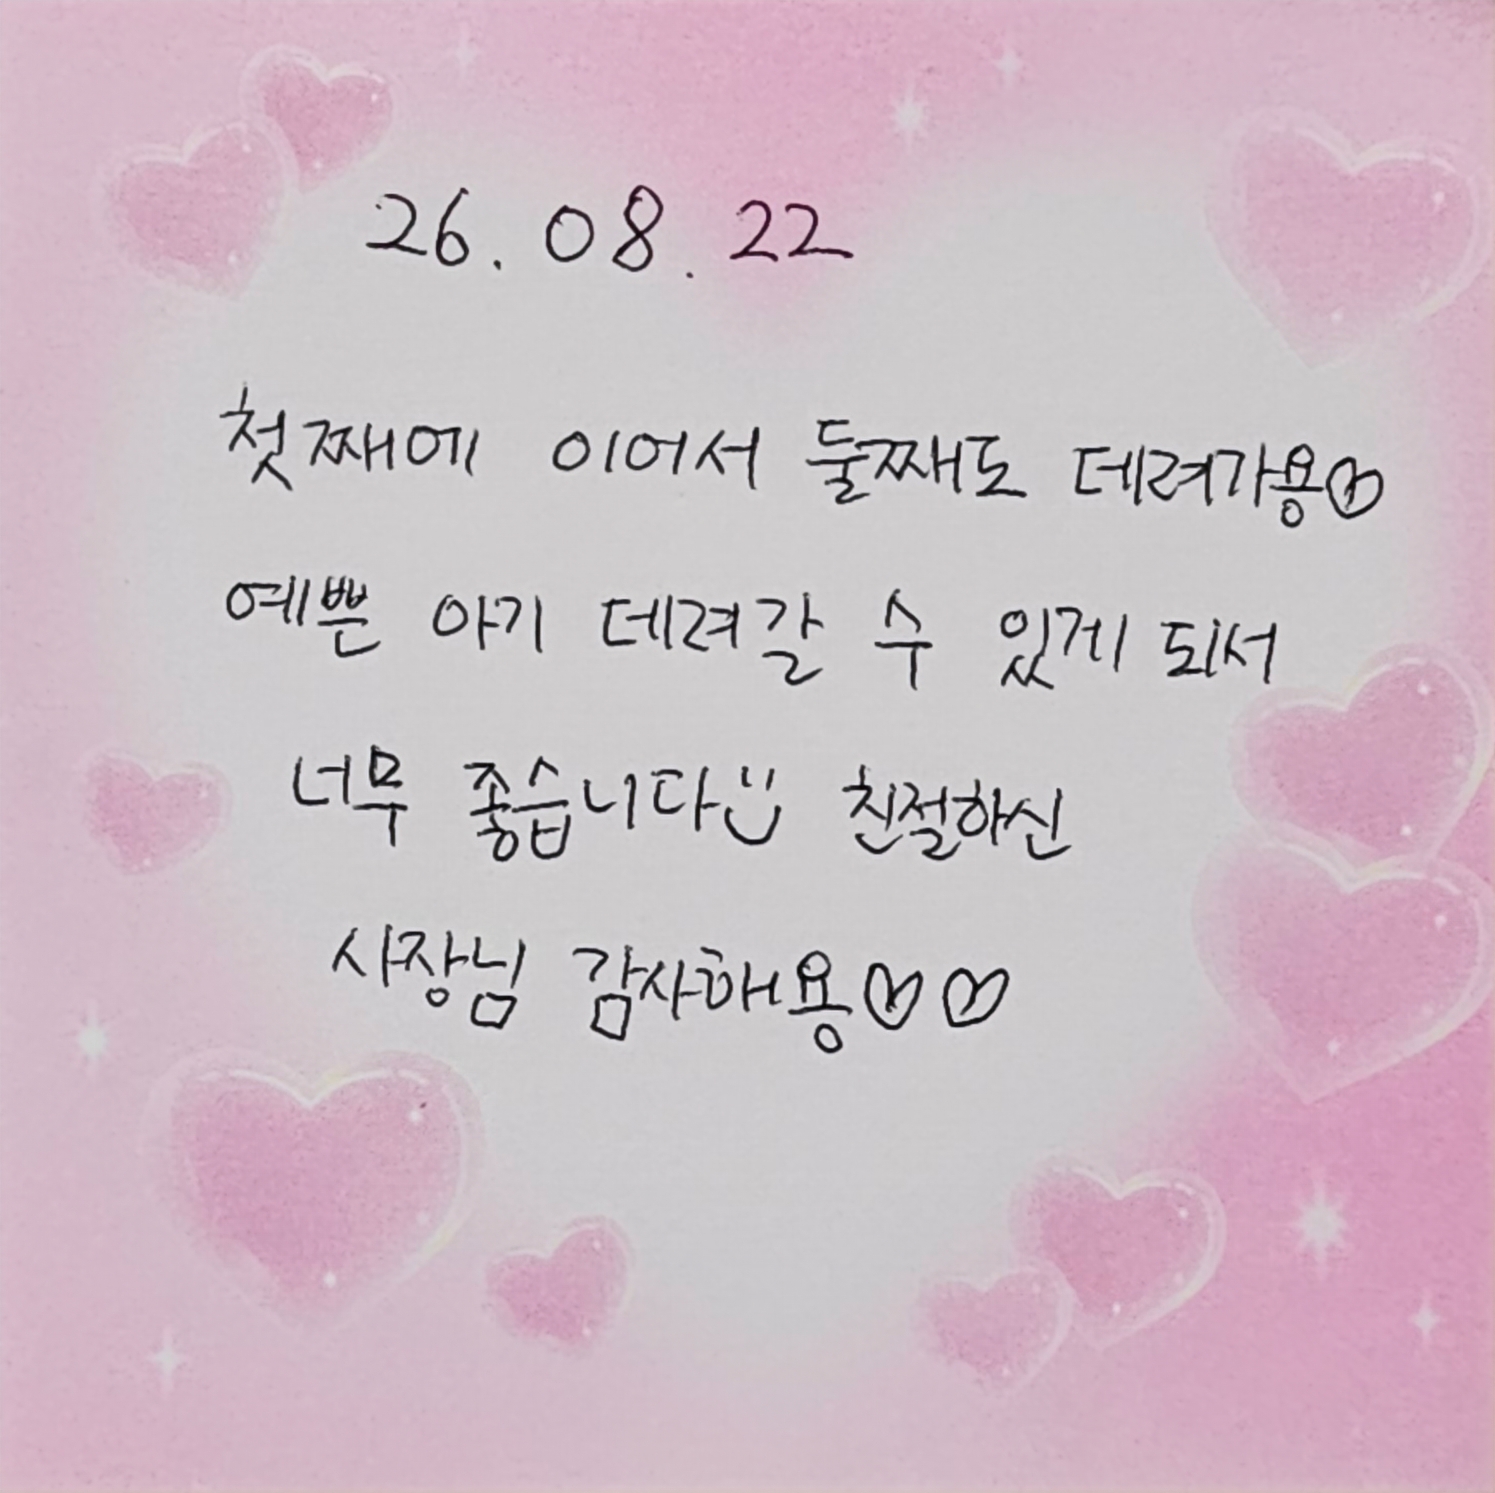 26.08.22
첫째에 이어서 둘째도 데려가용♡
예쁜 아기 데려갈 수 있게 되서
너무 좋습니다 :) 친절하신
사장님 감사해용♡♡